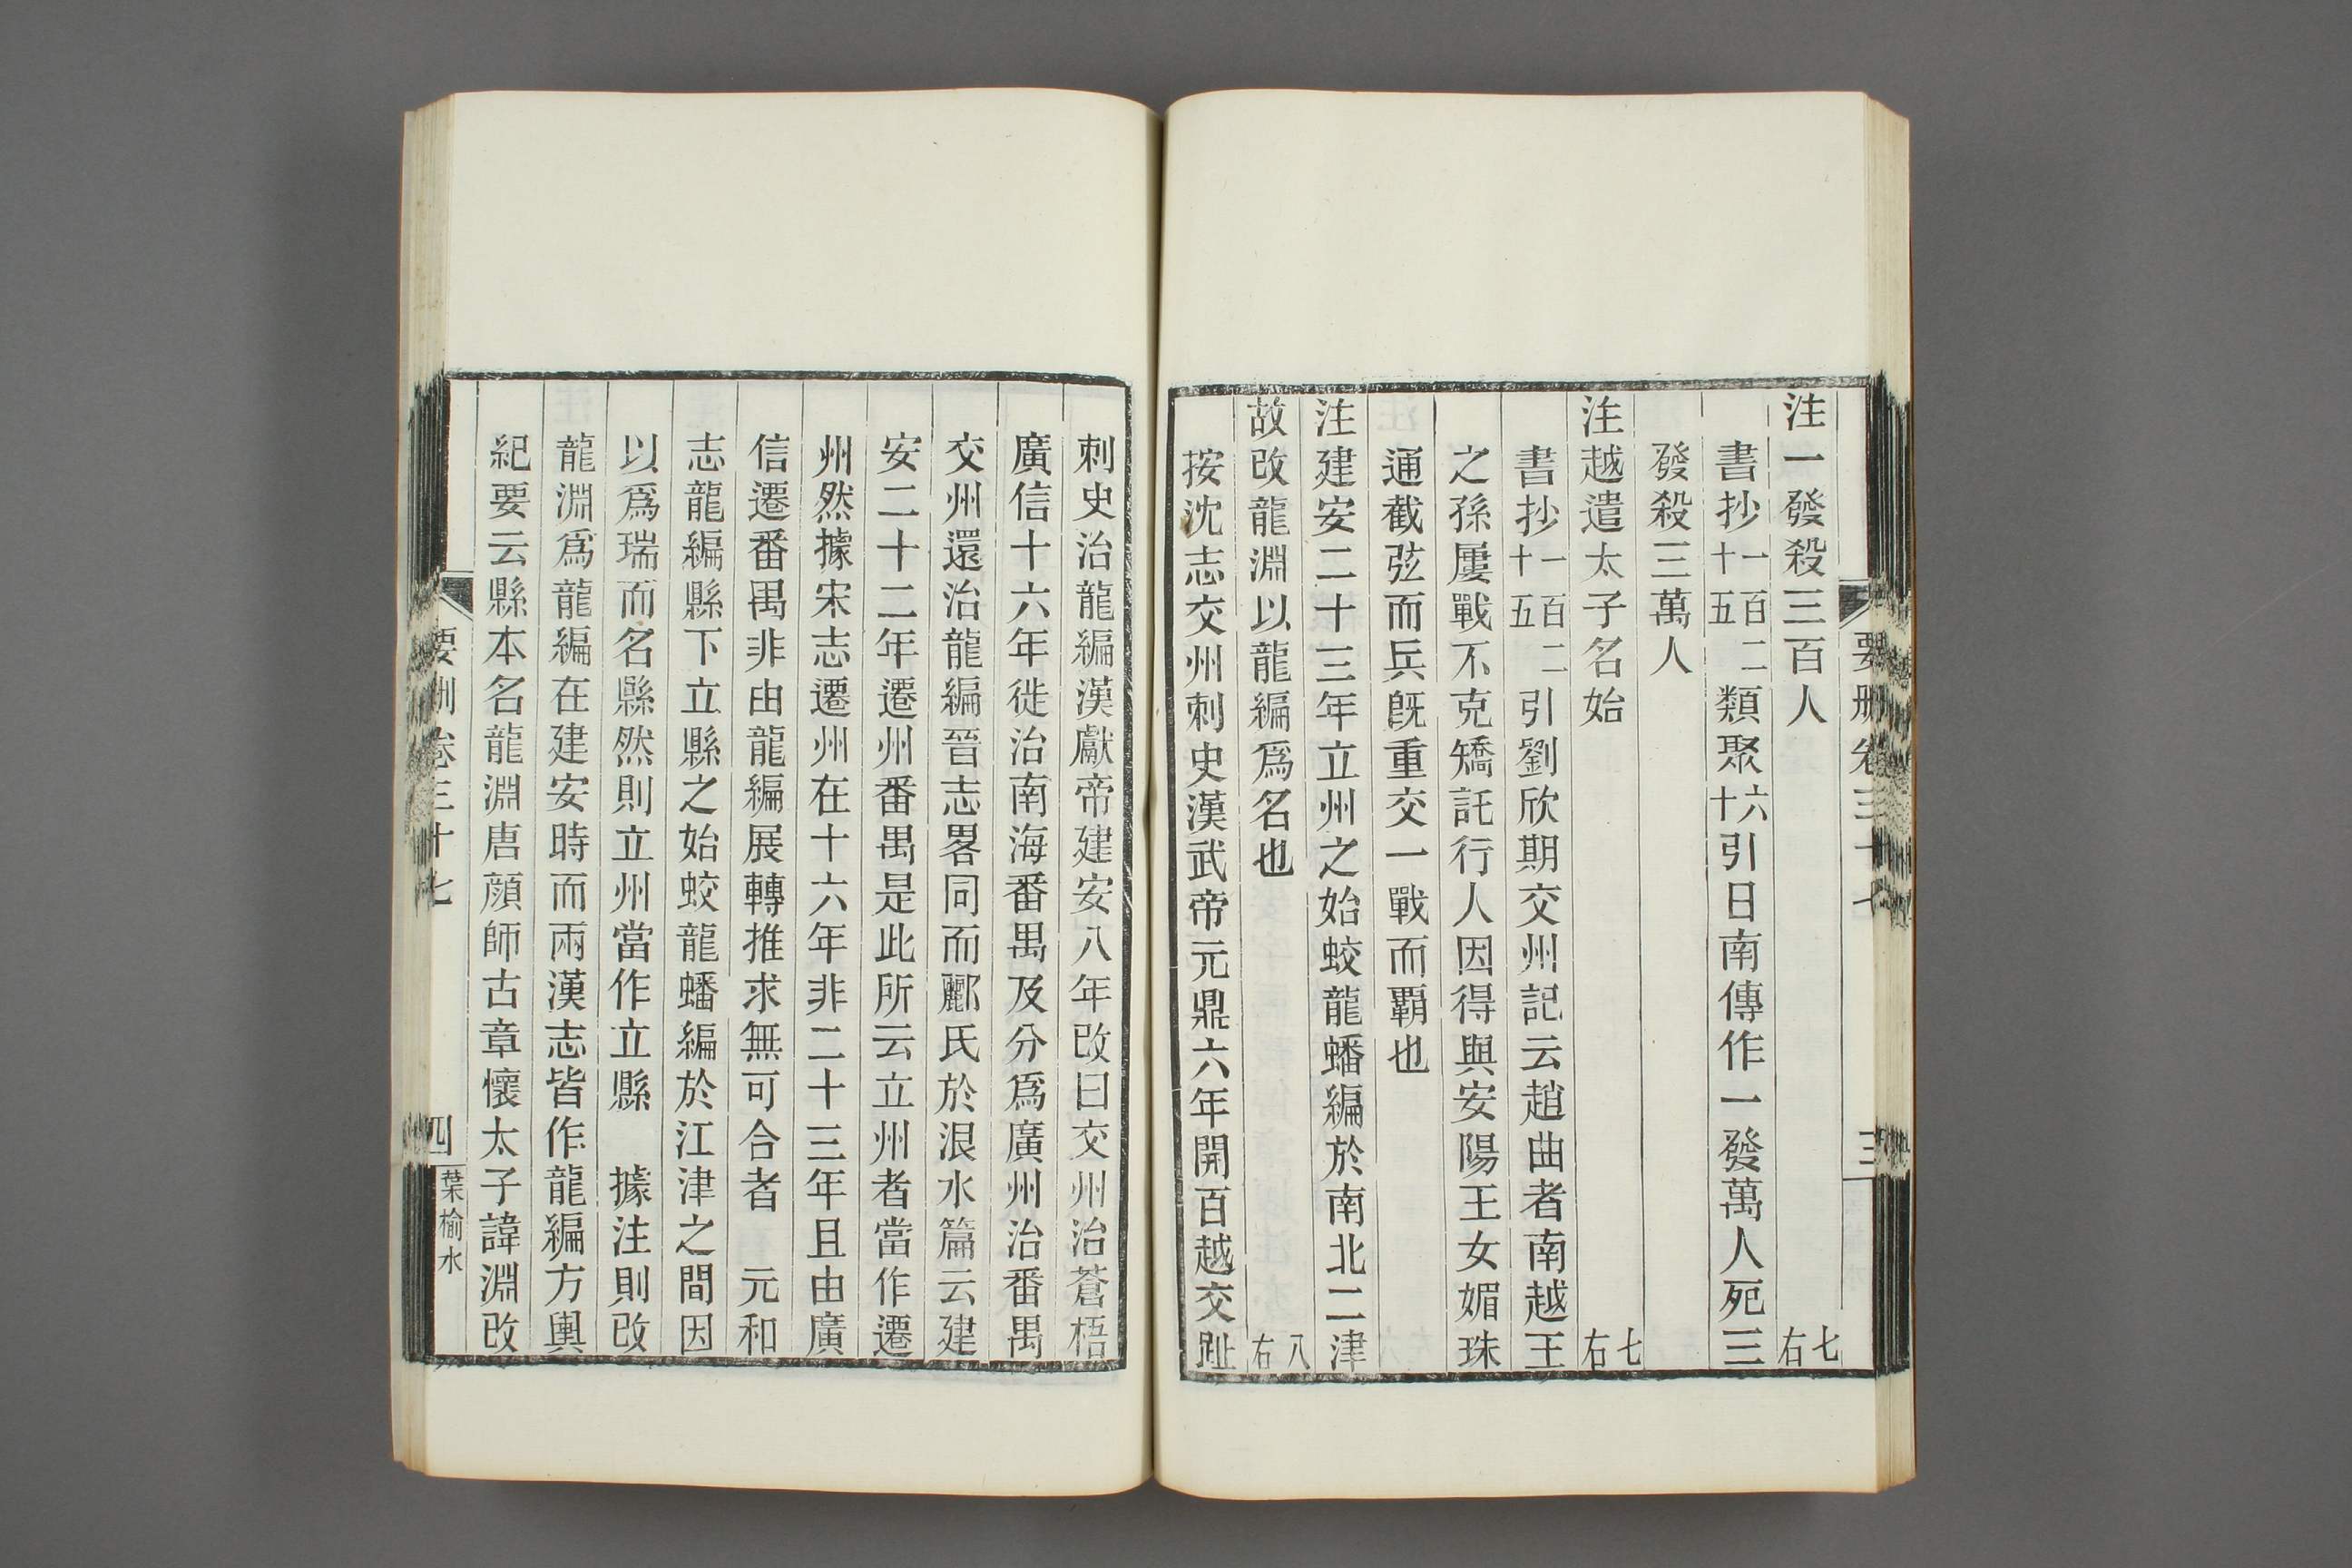 注一發殺三百人 七右
書抄一百二十五類聚六十引日南傳作一發萬人死三
發殺三萬人
注越遣太子名始 七右
書抄一百二十五引劉欣期交州記云趙曲者南越王
之孫屢戰不克矯託行人因得與安陽王女媚珠
通截弦而兵旣重交一戰而覇也
注建安二十三年立州之始蛟龍蟠編於南北二津
故改龍淵以龍編爲名也 八右
按沈志交州刺史漢武帝元鼎六年開百越交趾
要刪卷三十七 三
刺史治龍編漢獻帝建安八年改曰交州治蒼梧
廣信十六年徙治南海番禺及分爲廣州治番禺
交州還治龍編晉志畧同而酈氏於浪水篇云建
安二十二年遷州番禺是此所云立州者當作遷
州然據宋志遷州在十六年非二十三年且由廣
信遷番禺非由龍編展轉推求無可合者 元和
志龍編縣下立縣之始蛟龍蟠編於江津之間因
以爲瑞而名縣然則立州當作立縣 據注則改
龍淵爲龍編在建安時而兩漢志皆作龍編方輿
紀要云縣本名龍淵唐顔師古章懷太子諱淵改
要刪卷三十七 四 葉榆水